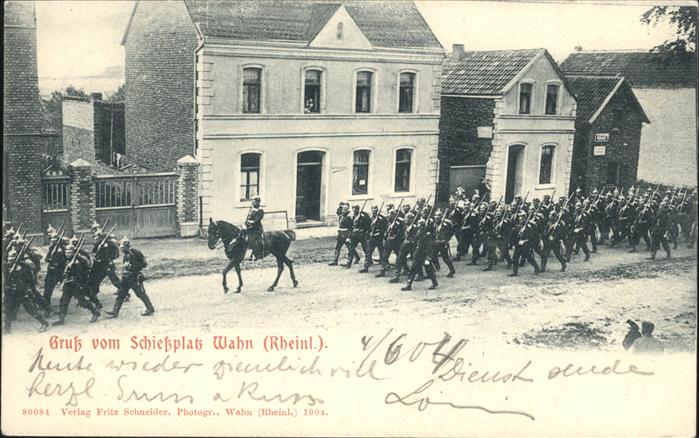 Gruß vom Schießplatz Wahn (Rheinl.).
4/6 04
Heute wieder ziemlich viel Dienst
herzl. Gruss u Kuss
80084 Verlag Fritz Schneider, Photogr., Wahn (Rheinl.) 1904.